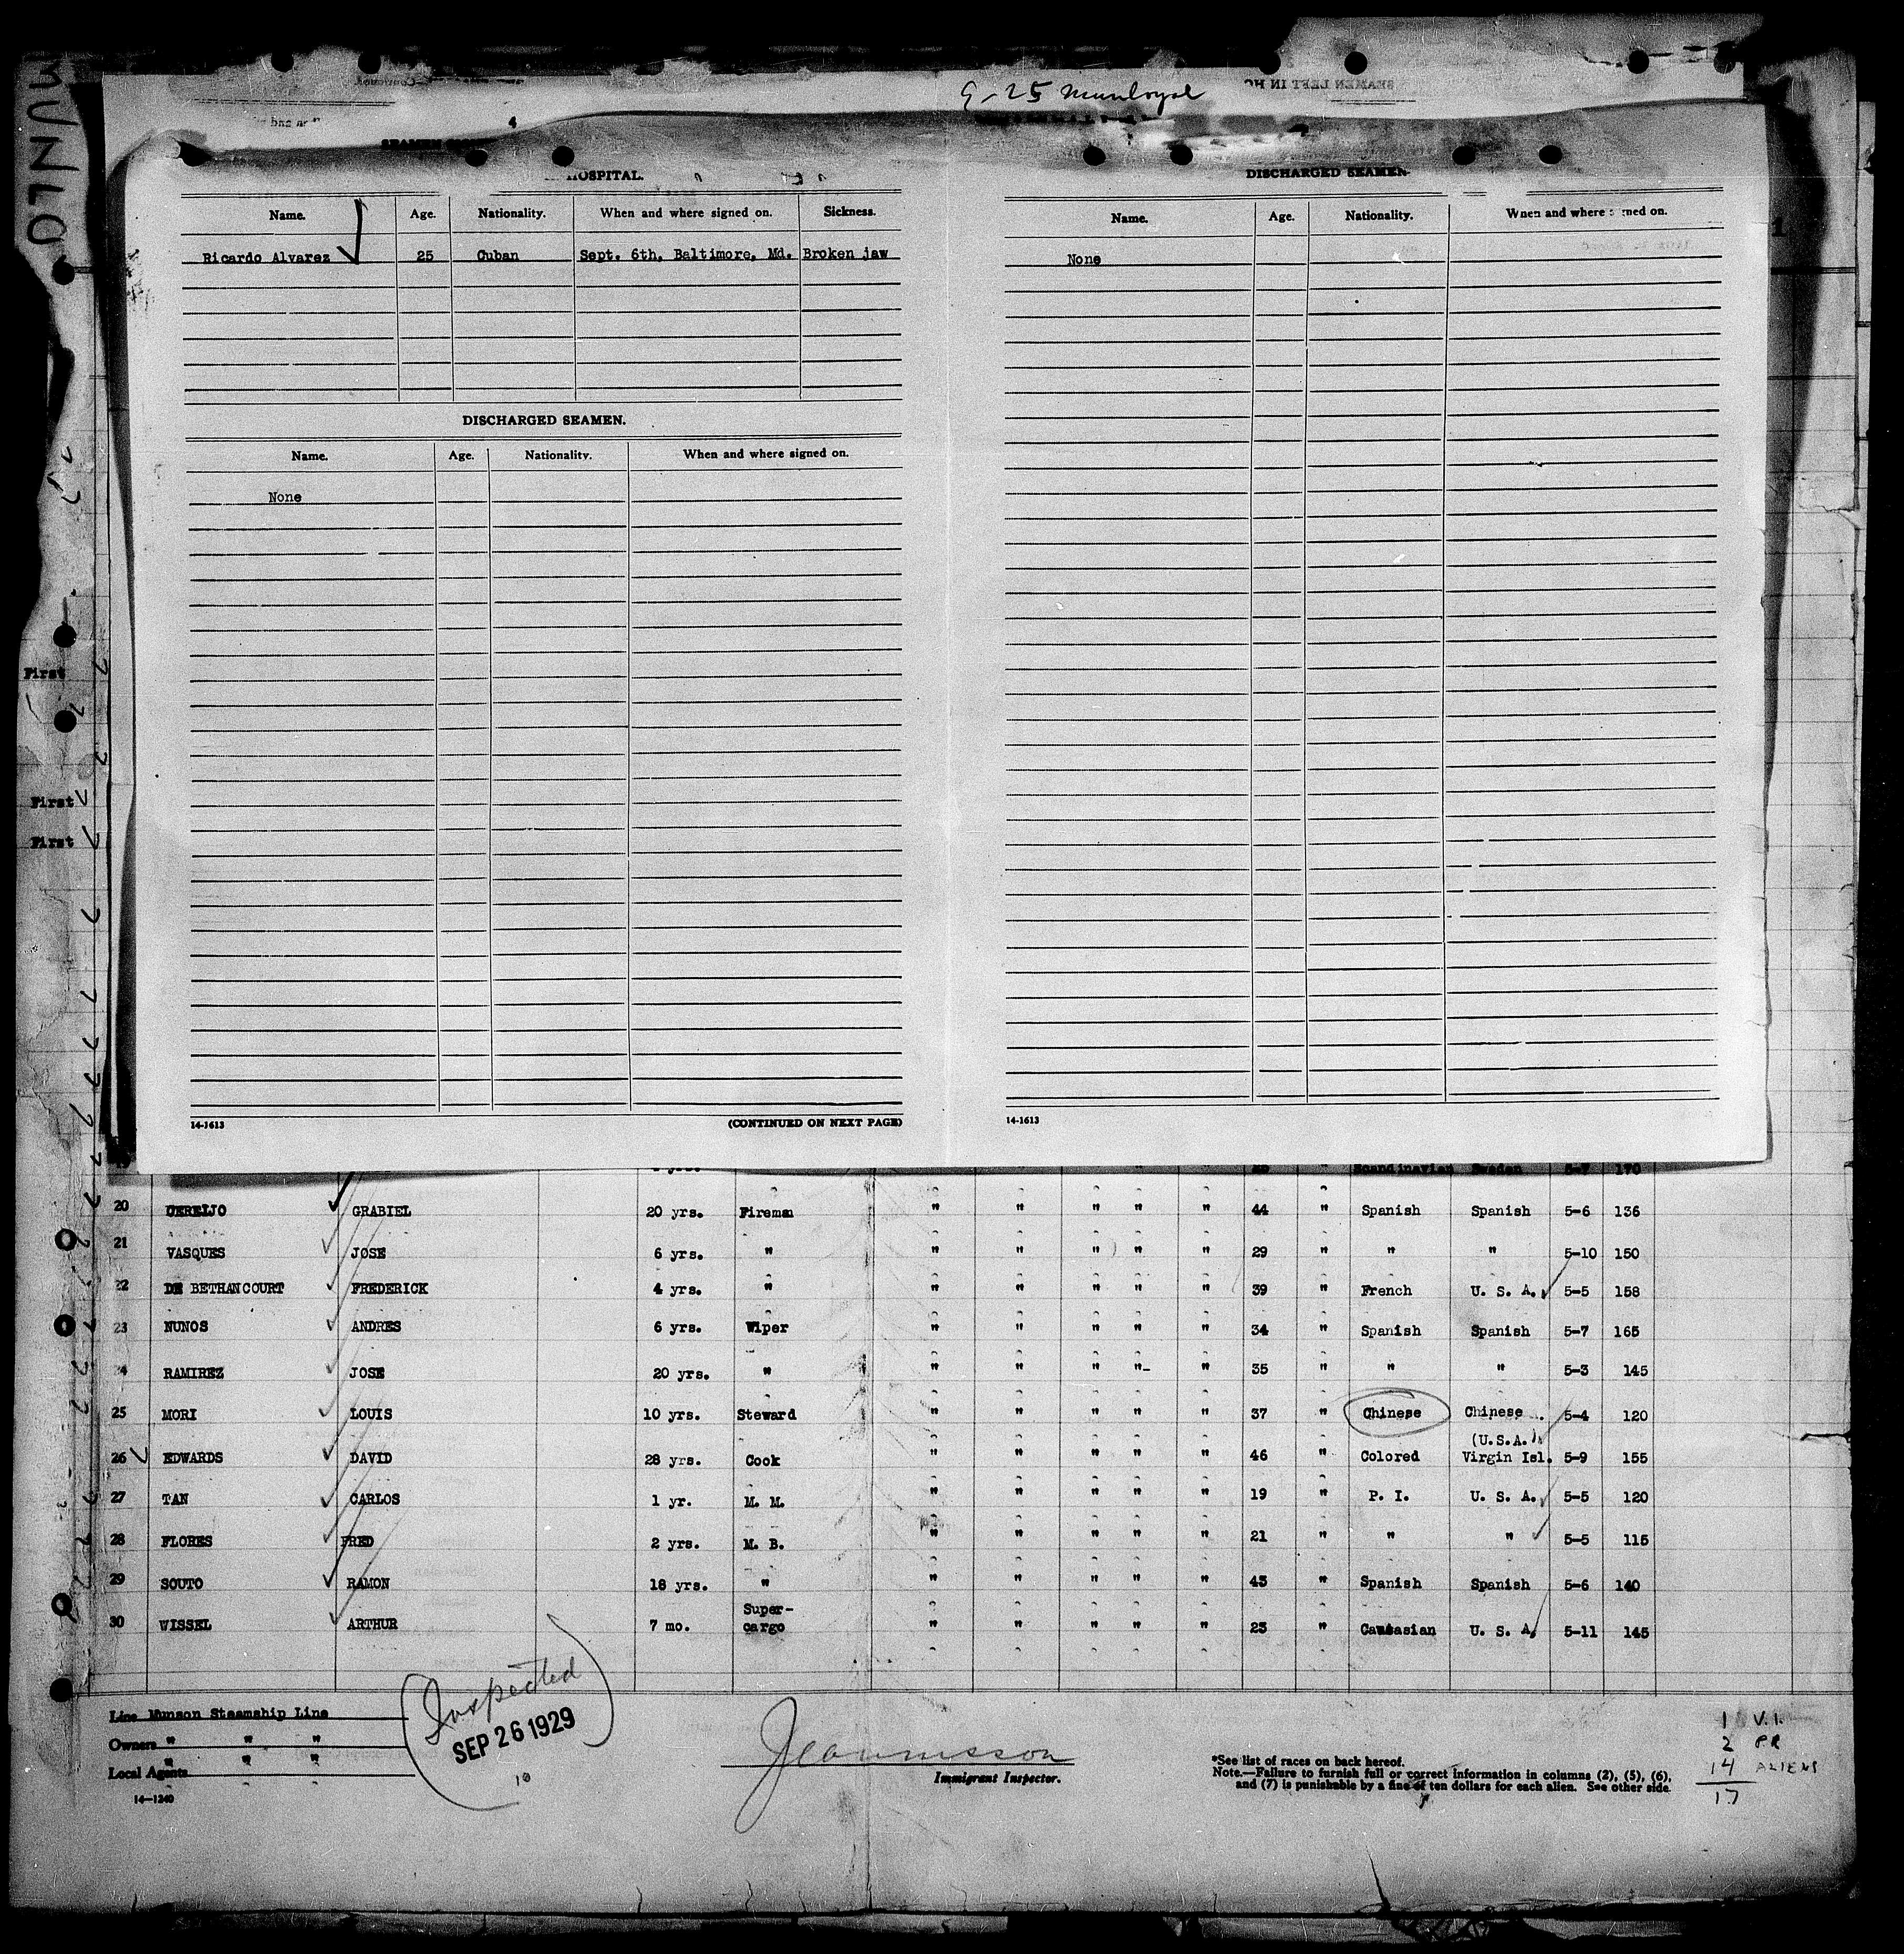 MUNLO
9-25 Munloyal
4
HOSPITAL.
Name. Age. Nationality. When and where signed on. Sickness.
Ricardo Alvarez 25 Cuban Sept. 6th, Baltimore, Md. Broken jaw
DISCHARGED SEAMEN.
Name. Age. Nationality. When and where signed on.
None
14-1613 (CONTINUED ON NEXT PAGE)
DISCHARGED SEAMEN.
Name. Age. Nationality. When and where signed on.
None
14-1613
First
First
First
Scandinavian Sweden 5-7 170
20 CEREIJO GRABIEL 20 yrs. Fireman " " " " " 44 " Spanish Spanish 5-6 136
21 VASQUES JOSE 6 yrs. " " " " " " 29 " " " 5-10 150
22 DE BETHANCOURT FREDERICK 4 yrs. " " " " " " 39 " French U. S. A. 5-5 158
23 NUNOS ANDRES 6 yrs. Wiper " " " " " 34 " Spanish Spanish 5-7 165
4 RAMIREZ JOSE 20 yrs. " " " " "- " 35 " " " 5-3 145
25 MORI LOUIS 10 yrs. Steward " " " " " 37 " Chinese Chinese 5-4 120
26 EDWARDS DAVID 28 yrs. Cook " " " " " 46 " Colored (U.S.A.) Virgin Isl. 5-9 155
27 TAN CARLOS 1 yr. M. M. " " " " " 19 " P. I. U. S. A. 5-5 120
28 FLORES FRED 2 yrs. M. B. " " " " " 21 " " " 5-5 115
29 SOUTO RAMON 18 yrs. " " " " " " 43 " Spanish Spanish 5-6 140
30 WISSEL ARTHUR 7 mo. Super-cargo " " " " " 23 " Caucasian U. S. A. 5-11 145
Line Munson Steamship Line
Owners " " "
Local Agents " " "
14-1240
Inspected
SEP 26 1929
10
Immigrant Inspector.
*See list of races on back hereof.
Note.—Failure to furnish full or correct information in columns (2), (5), (6),
and (7) is punishable by a fine of ten dollars for each alien. See other side.
1 V.I.
2 PR
14 ALIENS
17